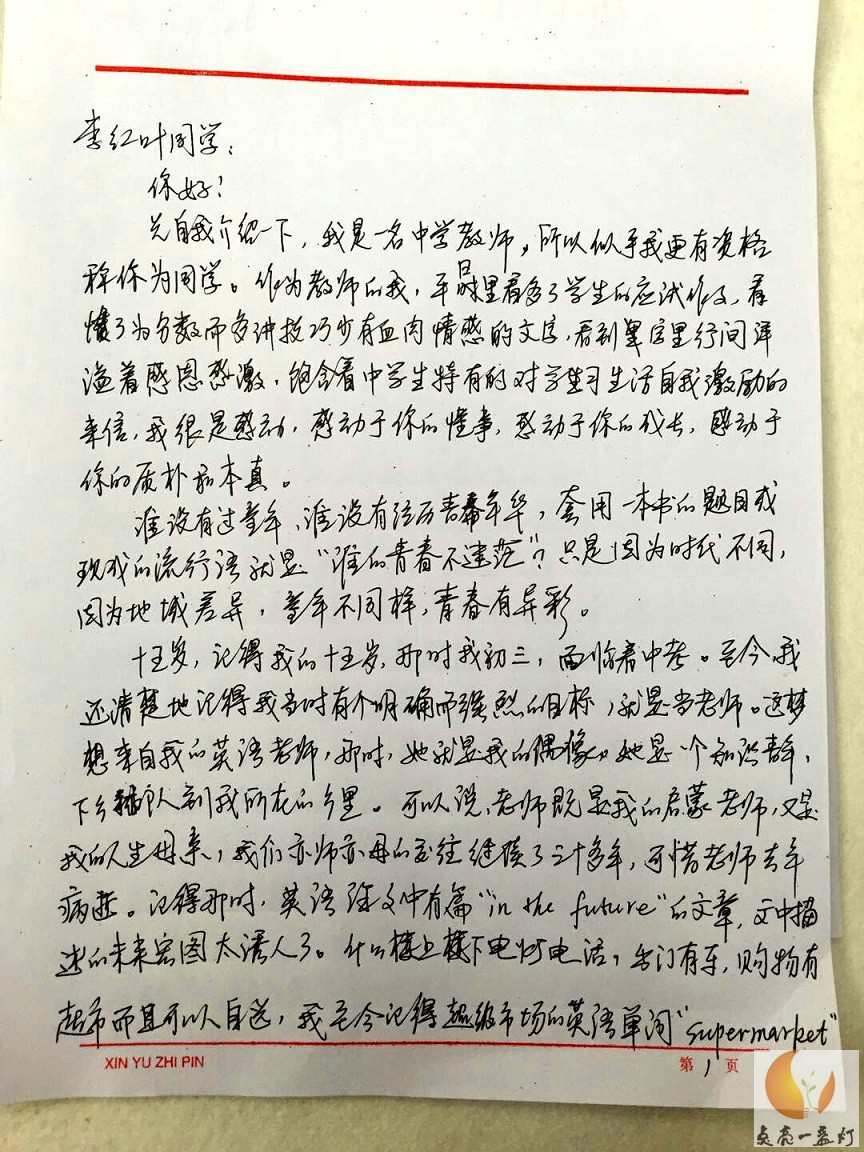 李红叶同学：
你好！
先自我介绍一下，我是一名中学教师，所以似乎我更有资格
称你为同学。作为教师的我，平日里看多了学生的应试作文，看
惯了为分数而多讲技巧少有血肉情感的文字，看到字里行间洋
溢着感恩感激，饱含着中学生特有的对学习生活自我激励的
来信，我很是感动，感动于你的懂事，感动于你的成长，感动于
你的质朴和本真。
谁没有过童年，谁没有经历青春年华，套用一本书的题目或
现成的流行语就是“谁的青春不迷茫”？只是因为时代不同，
因为地域差异，童年不同样，青春有异彩。
十五岁，记得我的十五岁，那时我初三，面临着中考。至今我
还清楚地记得我当时有个明确而强烈的目标，就是当老师。这梦
想来自我的英语老师，那时，她就是我的偶像。她是一个知识青年，
下乡插队到我所在的乡里。可以说，老师既是我的启蒙老师，又是
我的人生母亲，我们亦师亦母的交往继续了三十多年，可惜老师去年
病逝。记得那时，英语课文中有篇“in the future”的文章，文中描
述的未来宏图太诱人了。什么楼上楼下电灯电话，出门有车，购物有
超市而且可以自选，我至今记得超级市场的英语单词“supermarket”
XIN YU ZHI PIN
第 1 页
点亮一盏灯